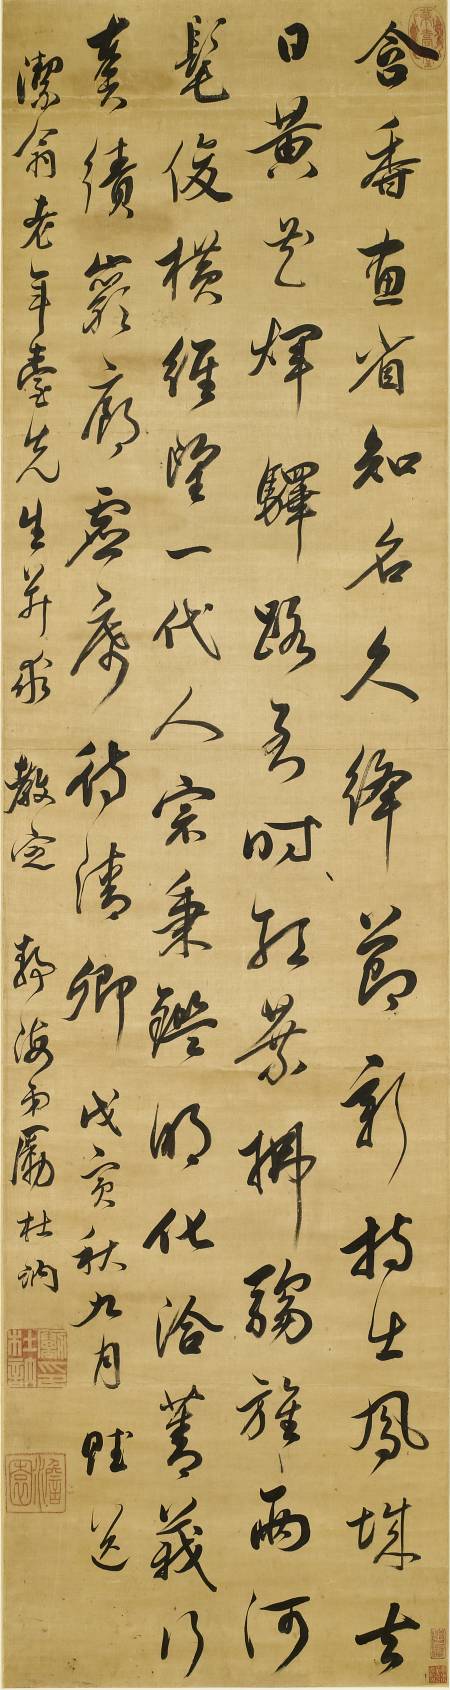 含香畫省知名久絳節新持出鳳城去
日黃花輝驛路到時紅葉拂騶旌兩河
髦俊橫經望一代人宗秉鑑明化洽菁莪行
奏績巖廊虛席待清卿 戊寅秋九月賦送
潔翁老年臺先生并求 教定 靜海弟勵杜訥